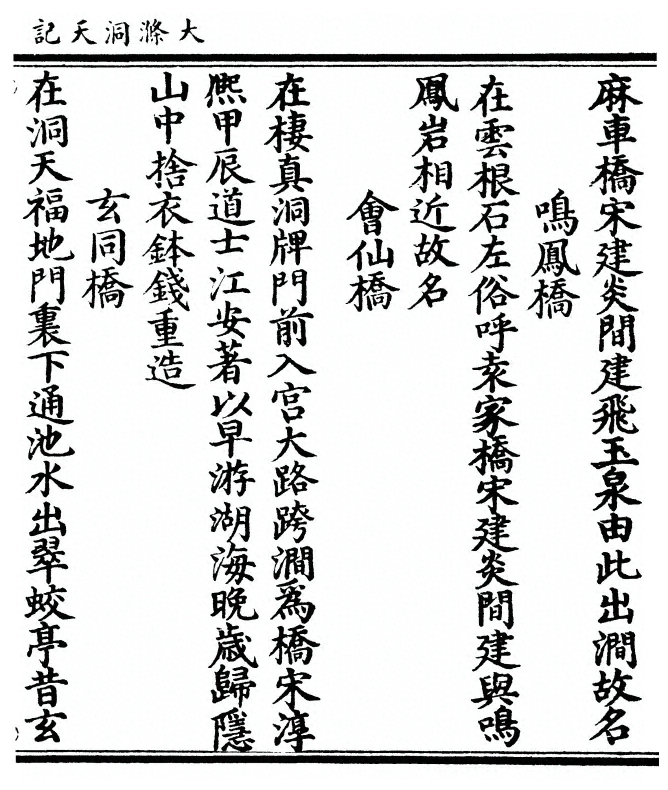 大滌洞天記
麻車橋宋建炎間建飛玉泉由此出澗故名
鳴鳳橋
在雲根石左俗呼袁家橋宋建炎間建與鳴
鳳岩相近故名
會仙橋
在棲真洞牌門前入宮大路跨澗爲橋宋淳
熈甲辰道士江安著以早游湖海晚歲歸隱
山中捨衣鉢錢重造
玄同橋
在洞天福地門裏下通池水出翠蛟亭昔玄